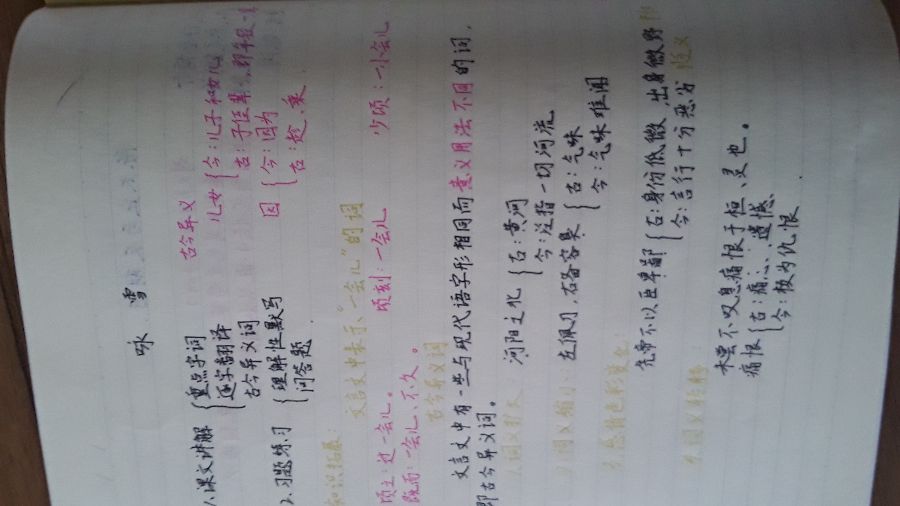 咏 雪
1.课文讲解 { 重点字词
逐字翻译
古今异义词
2.习题练习 { 理解性默写
问答题
古今异义
儿女 { 今:儿子和女儿
古:子侄辈,
因 { 今:因为
古:趁、乘
知识拓展:
文言文中表示“一会儿”的词
顷之:过一会儿。 顷刻:一会儿 少顷:一小会儿
既而:一会儿、不久。
古今异义词
文言文中有一些与现代语字形相同而意义用法不同的词,
即古今异义词。
1.词义扩大
河阳之北 { 古:黄河
今:泛指一切河流
2.词义缩小:
左佩刀,右备容臭 { 古:气味
今:气味难闻
3.感情色彩变化:
先帝不以臣卑鄙 { 古:身份低微,出身微野
今:言行十分恶劣 贬义
4.词义转移
未尝不叹息痛恨于桓、灵也。
痛恨 { 古:痛心、遗憾
今:极为仇恨